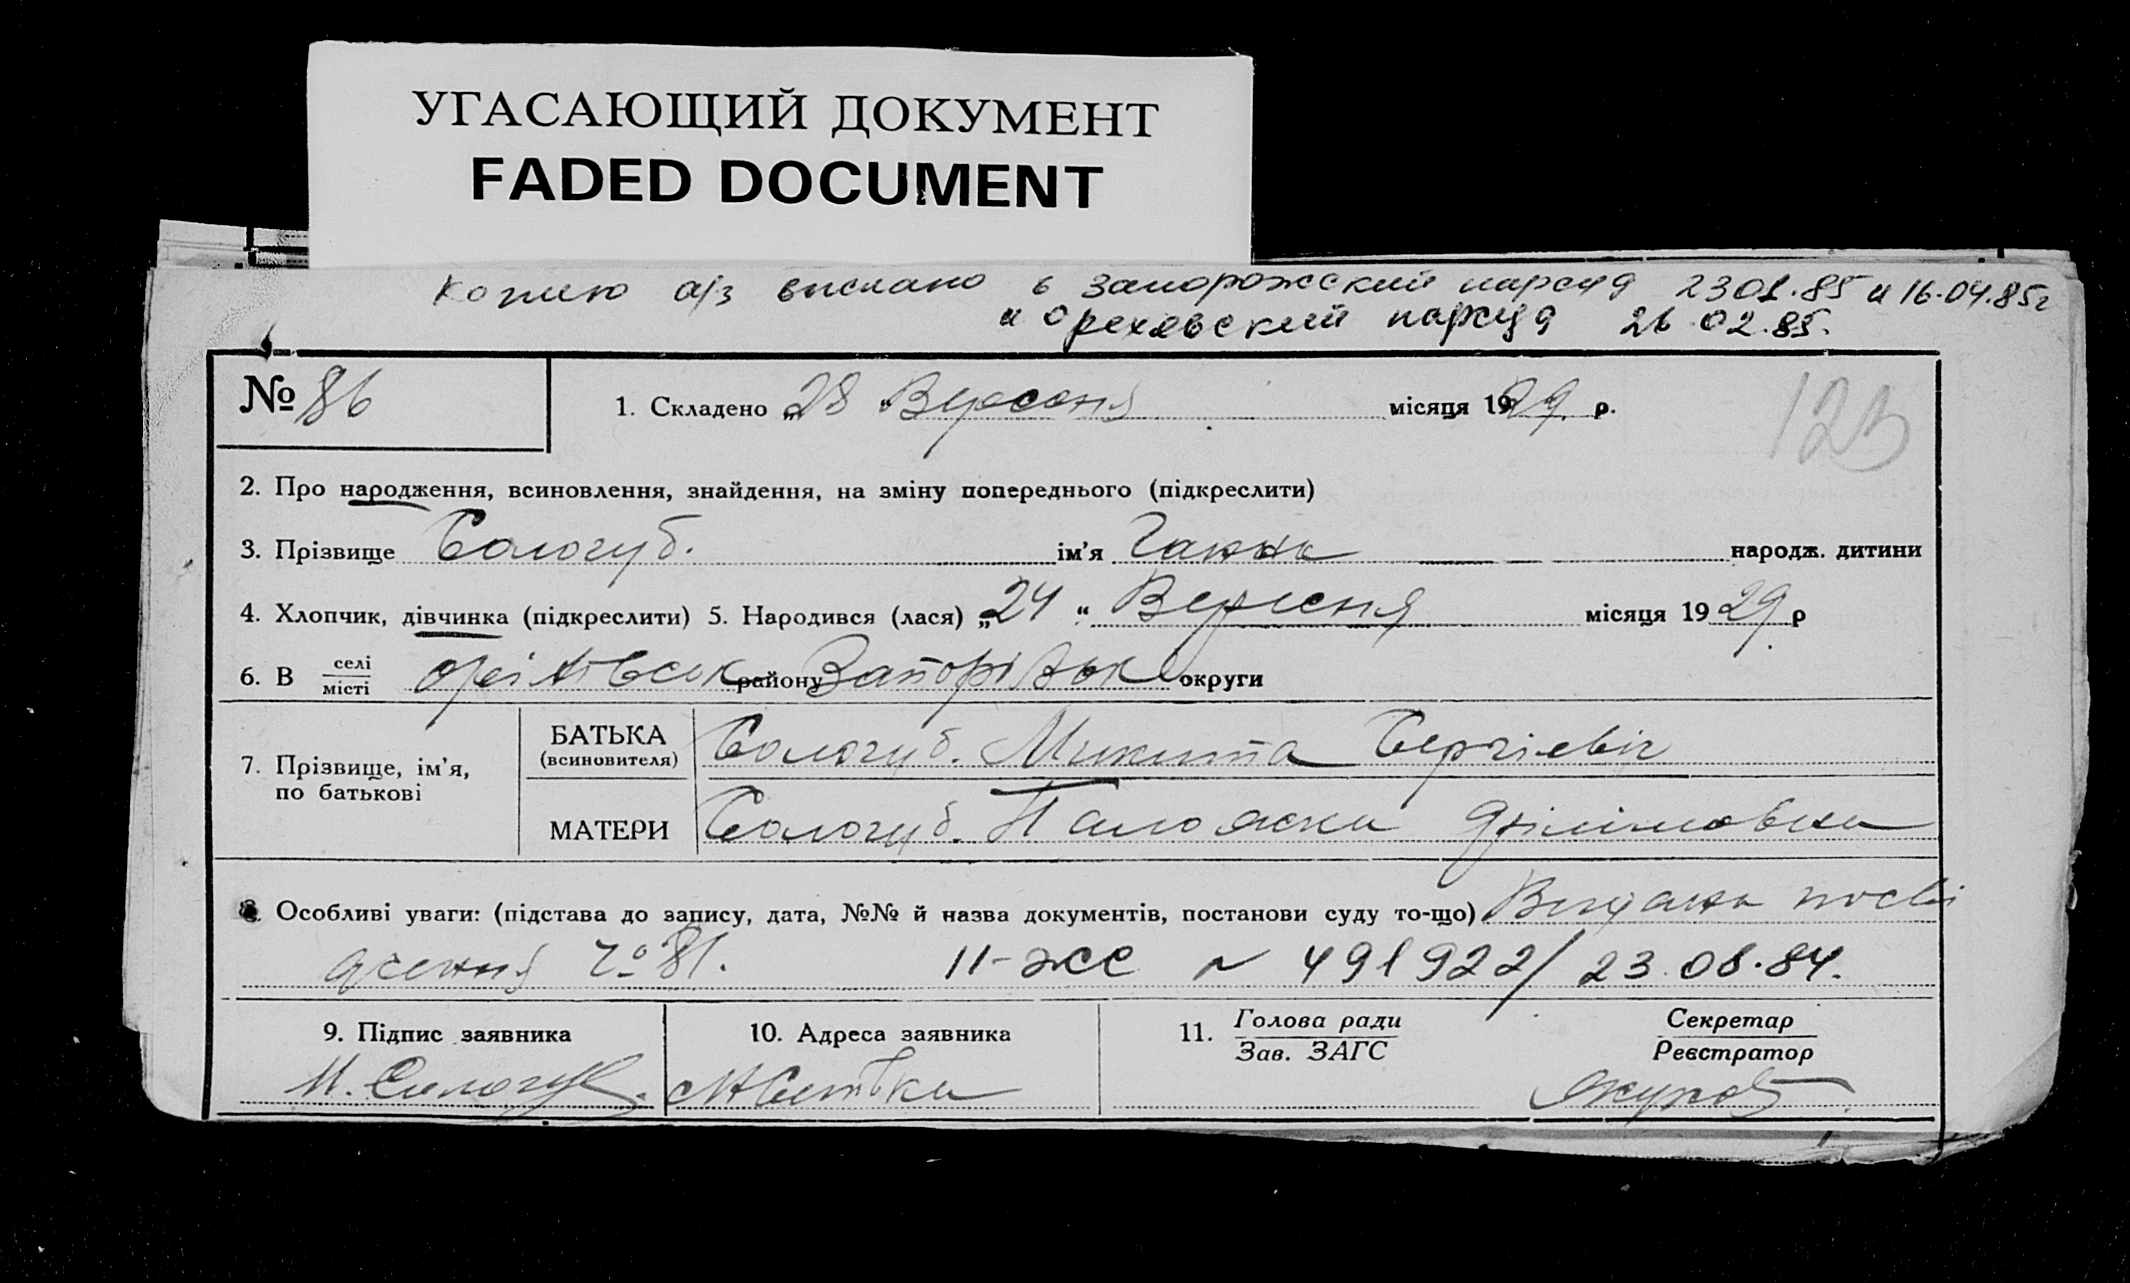 УГАСАЮЩИЙ ДОКУМЕНТ
FADED DOCUMENT
Копию а/з выслано в Запорожский нарсуд 23 01.85 и 16.04.85г
и Ореховский нарсуд 26 02.85.
№ 86
1. Складено „28 " Вересня місяця 1929 р.
123
2. Про народження, всиновлення, знайдення, на зміну попереднього (підкреслити)
3. Прізвище Сологуб. ім'я Ганна народж. дитини
4. Хлопчик, дівчинка (підкреслити) 5. Народився (лася) „24 " Вересня місяця 1929 р
6. В селі/місті Оріхівськ району Запорізьк округи
7. Прізвище, ім'я, по батькові
БАТЬКА (всиновителя) Сологуб. Микита Сергієвіч
МАТЕРИ Сологуб.
8. Особливі уваги: (підстава до запису, дата, №№ й назва документів, постанови суду то-що) Видана посві
дчення 81. II-жс № 491922/ 23.08.84.
9. Підпис заявника
10. Адреса заявника
11. Голова ради/Зав. ЗАГС
Секретар/Реєстратор
М. Сологуб.